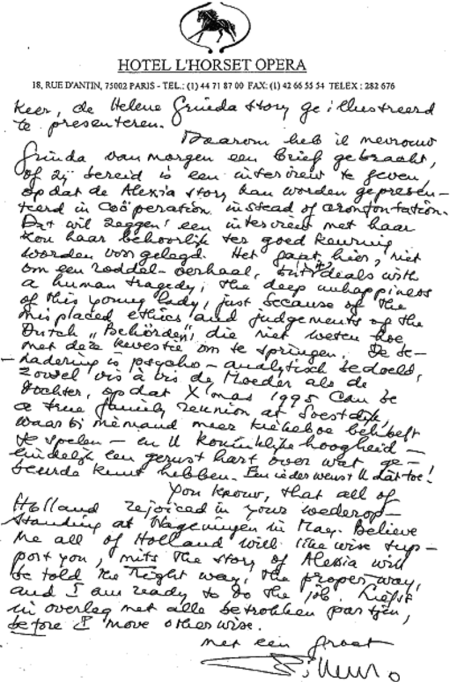 HOTEL L'HORSET OPERA
18, RUE D'ANTIN, 75002 PARIS - TEL.: (1) 44 71 87 00 FAX: (1) 42 66 55 54 TELEX : 282 676
keer, de Helene Grinda story geillustreerd
te presenteren.
Daarom heb ik mevrouw
Grinda vanmorgen een brief gebracht,
of zij bereid is een interview te geven,
opdat de Alexia story kan worden gepresen-
teerd in Coöperation instead of
Dat wil zeggen: een interview met haar
kon haar behoorlijk ter goed keuring
worden voorgelegd. Het gaat hier, niet
om een roddel-verhaal, but deals with
a human tragedy; the deep unhappiness
of this young lady, just because of the
misplaced ethics and judgements of the
Dutch „Behörden", die niet weten hoe
met deze kwestie om te springen. De be-
nadering is psycho-analytisch bedoeld,
zowel vis à vis de Moeder als de
dochter, opdat X'mas 1995 can be
a true family reunion at Soestdijk,
waarbij niemand meer kiekeboe behoeft
te spelen - en U koninklijke hoogheid -
eindelijk een gerust hart over wat ge-
beurde kunt hebben. Een ieder wenst U dat toe!
You know, that all of
Holland rejoiced in your wederop-
standing at Wageningen in May. Believe
me all of Holland will likewise sup-
port you, mits the story of Alexia will
be told the right way, the proper way,
and I am ready to do the job. Liefst
in overleg met alle betrokken partijen,
before I move otherwise.
met een groet